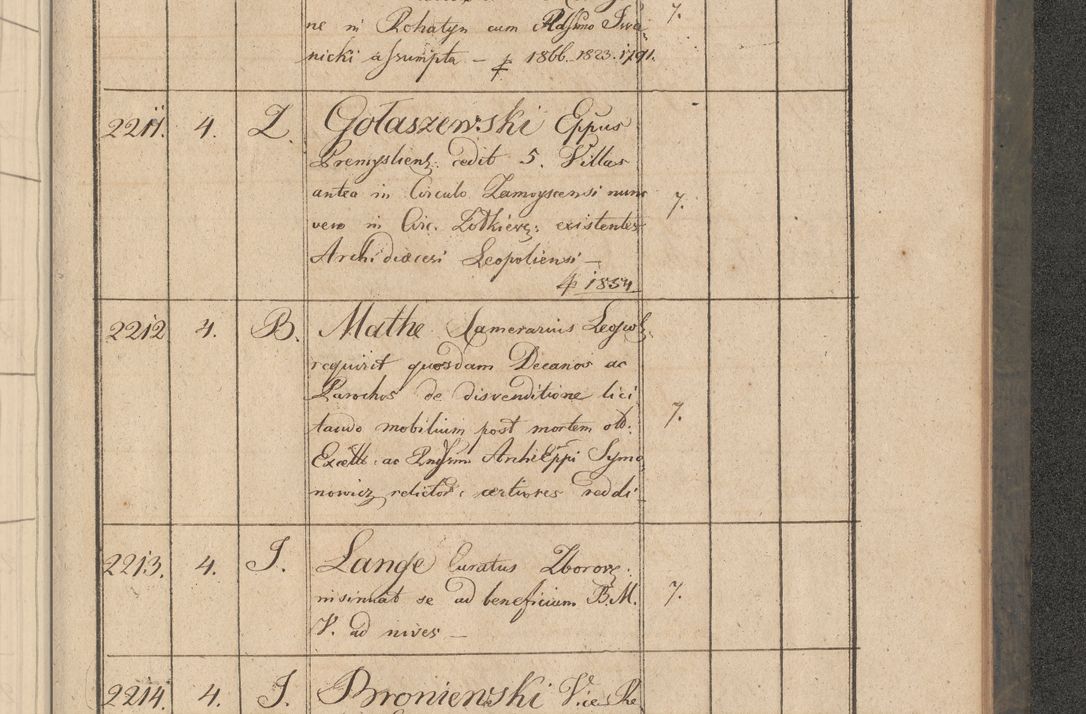 ne in Rohatyn cum Rdssimo Iwa 7.
nicki assumpta – 1866. 1823. 1791.
2211. 4. Z. Gołaszewski Eppus
Premysliens. cedit 5. Villas
antea in Circulo Zamoyscensi nunc 7.
vero in Circ. Zołkiev: existentes
Archi diœcesi Leopoliensi –
1854
2212 4. B. Mathe Camerarius Leopol.
requirit quosdam Decanos ac
Parochos de disvenditione lici
tando mobilium post mortem 7.
ac ArchiEppi Symo
nowicz certiores reddi
2213. 4. J. Lange Curatus Zborov.
insinuat se ad beneficium B.M. 7.
V. ad nives –
2214. 4. J. Broniewski Vice